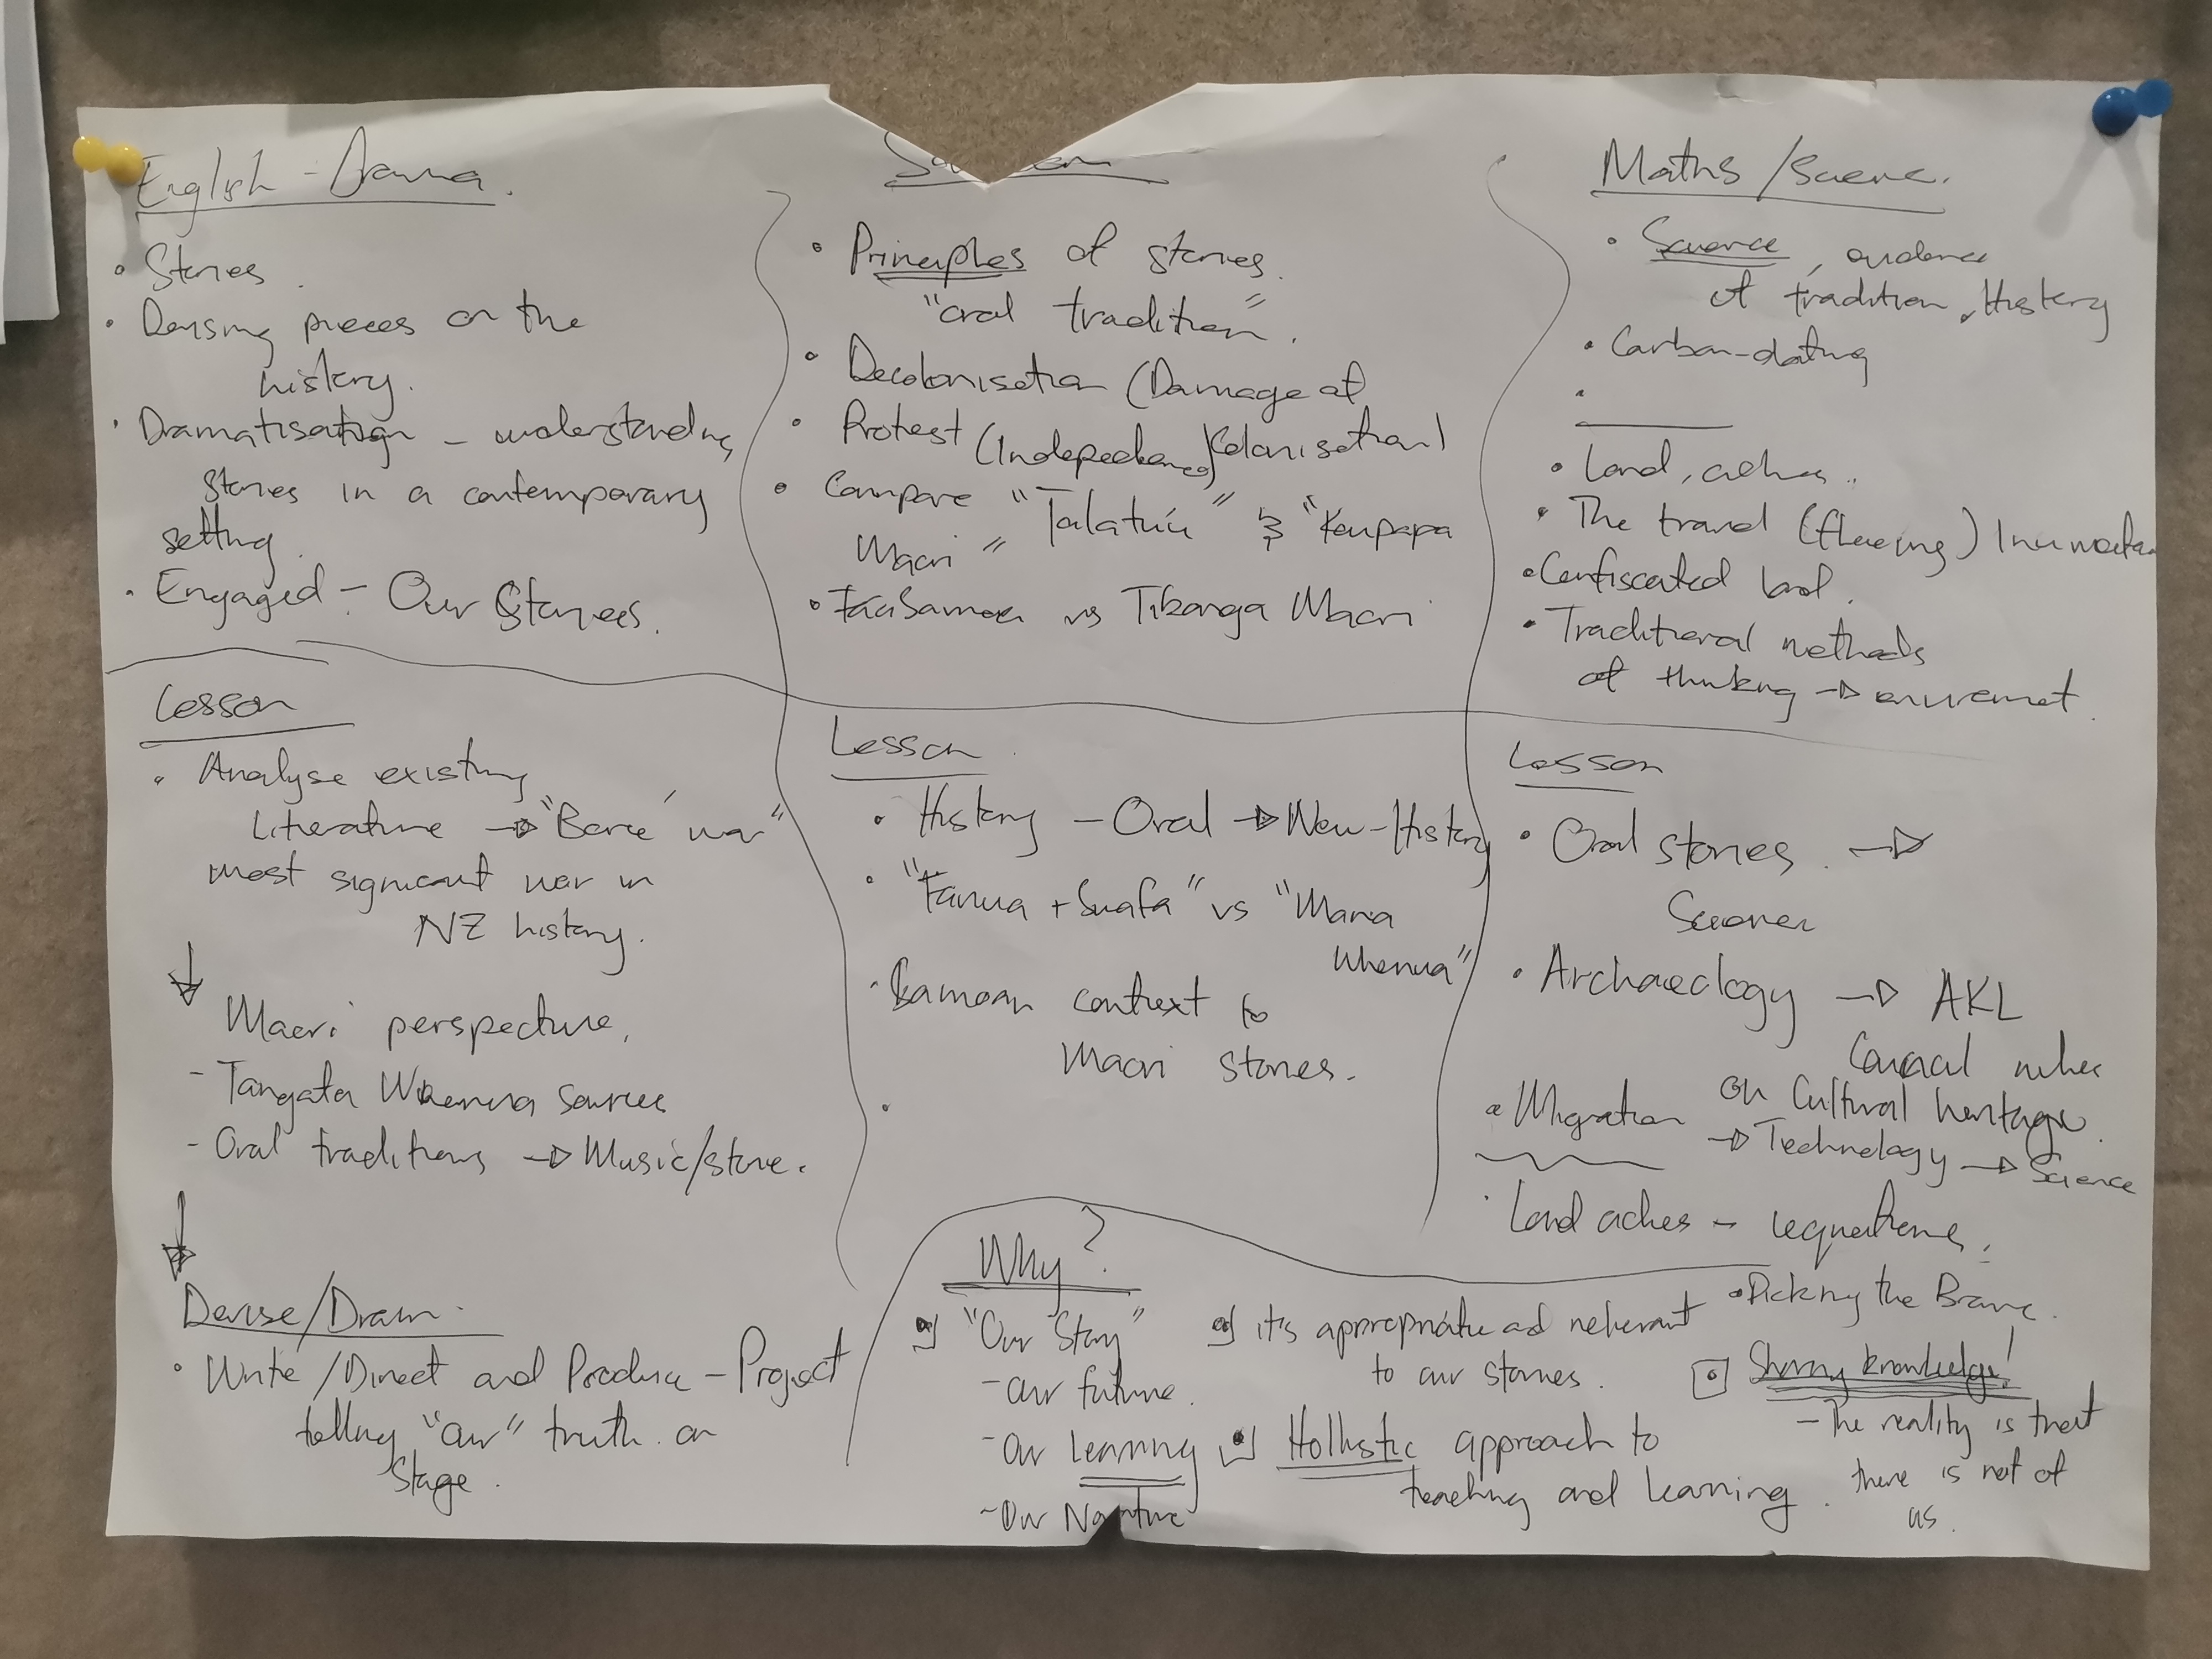 English - Drama.
• Stories.
• Devising pieces on the
history.
• Dramatisation - understanding
stories in a contemporary
setting.
• Engaged - Our Stories.
• Principles of stories.
"oral tradition".
• Decolonisation (Damage of
Colonisation)
• Protest (Independence)
• Compare "Talatuu" & "Kaupapa
Maori"
• FaaSamoa vs Tikanga Maori
Maths/Science.
• Science, evidence
of tradition, History
• Carbon-dating
•
• Land, aches..
• The travel (fleeing)
• Confiscated land.
• Traditional methods
of thinking → enviroment.
Lesson
• Analyse existing
Literature → war"
most significant war in
NZ history.
↓
Maori perspective,
- Tangata Whenua sources
- Oral traditions → Music/store.
↓
Devise/Dram.
• Write/Direct and Produce - Project
telling "our" truth. on
stage.
Lesson
• History - Oral → New-History
• "Fanua + Suafa" vs "Mana
Whenua"
• Samoan context to
Maori stories.
•
Lesson
• Oral stories. →
Science
• Archaeology → AKL
Council
on Cultural heritage.
• Migration → Technology → Science
• Land aches -
• Picking the
Why?
"Our Story"
- our future.
- Our Learning
- Our Narrative
it's appropriate ad relevant
to our stories.
Hollistic approach to
teaching and learning.
Sharing knowledge!
- The reality is that
there is not of
us.